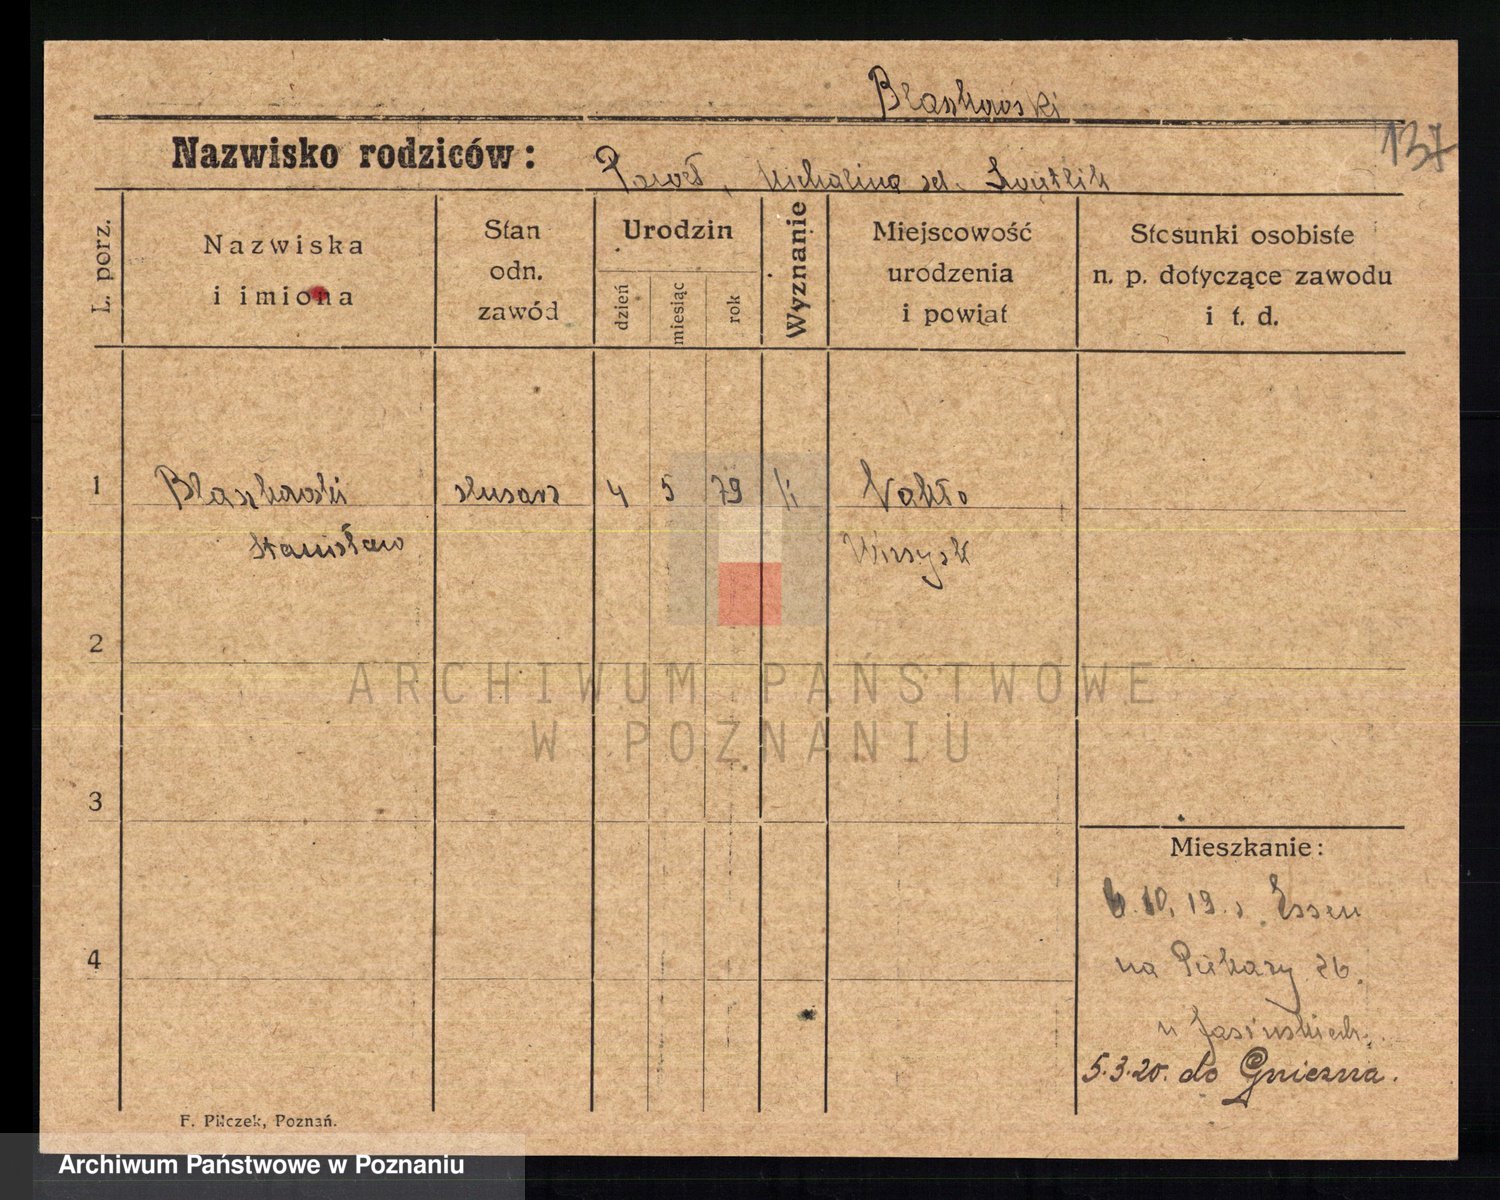 Błaszkowski
137
Nazwisko rodziców:
Paweł, Michalina
L. porz.
Nazwiska
i imiona
Stan
odn.
zawód
Urodzin
dzień
miesiąc
rok
Wyznanie
Miejscowość
urodzenia
i powiat
Stosunki osobiste
n. p. dotyczące zawodu
i t. d.
1 Błaszkowski ślusarz 4 5 79 k Nakło
Stanisław Wirsysk
2
ARCHIWUM PAŃSTWOWE
W POZNANIU
3
Mieszkanie:
6.10.19. z Essen
4
na Piekary 26.
u Jasińskich.
5.3.20. do Gniezna.
F. Pilczek, Poznań.
Archiwum Państwowe w Poznaniu